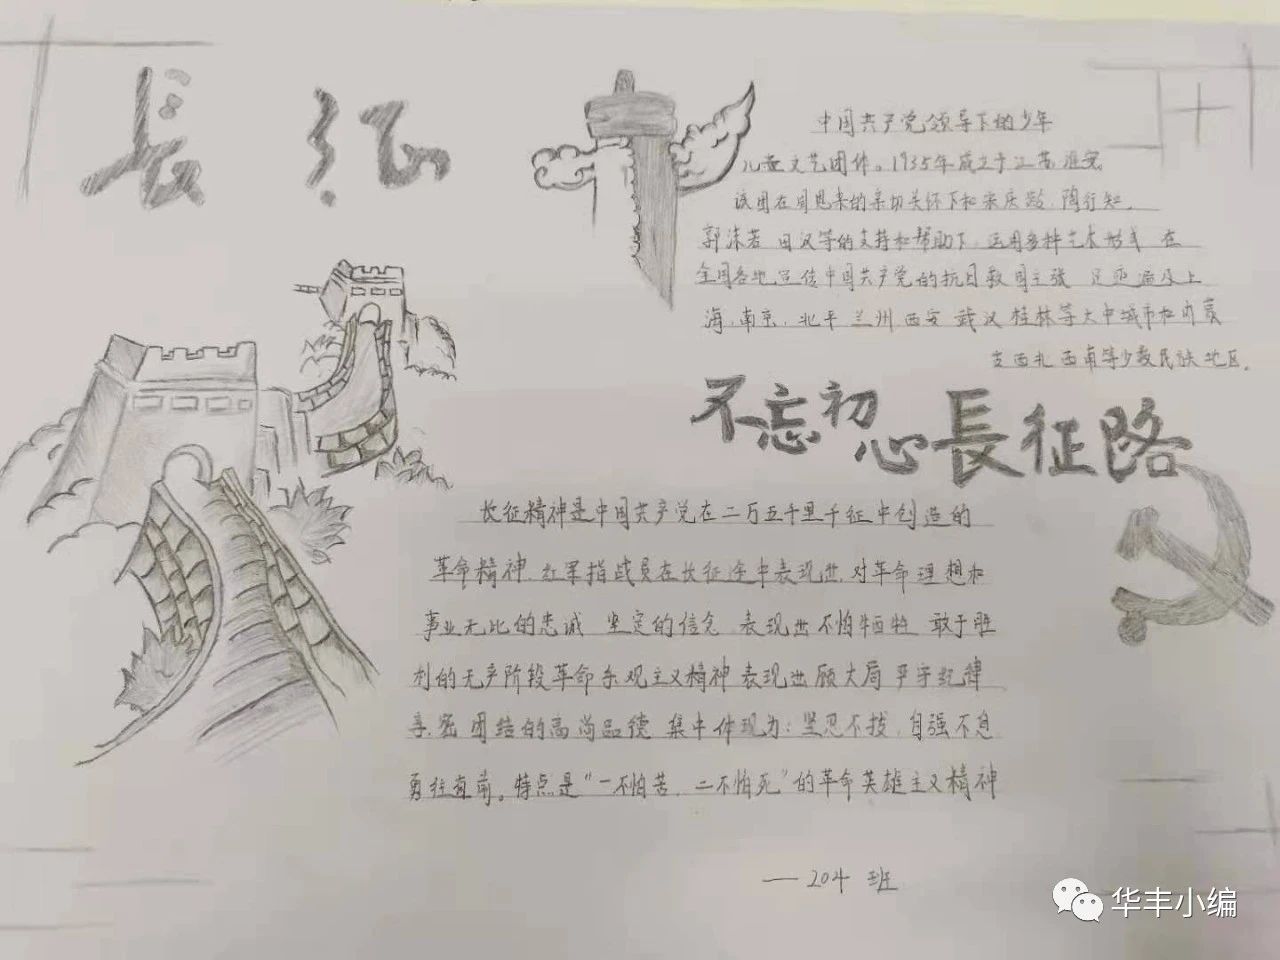 長征
中国共产党领导下的少年
儿童文艺团体。1935年成立于江苏淮安
该团在周恩来的亲切关怀下和宋庆龄、陶行知、
郭沫若 田汉等的支持和帮助下,运用多种艺术形式 在
全国各地宣传中国共产党的抗日救国主张 足迹遍及上
海、南京、北平 兰州 西安 武汉 桂林等大中城市和内蒙
西北 西南等少数民族地区.
不忘初心長征路
长征精神是中国共产党在二万五千里千征中创造的
革命精神.红军指战员在长征途中表现出,对革命理想和
事业无比的忠诚 坚定的信念 表现出不怕牺牲 敢于胜
利的无产阶段革命乐观主义精神 表现出顾大局 严守纪律
亲密团结的高尚品德 集中体现为:坚忍不拔,自强不息
勇往直前。特点是"一不怕苦、二不怕死"的革命英雄主义精神
——204 班
华丰小编